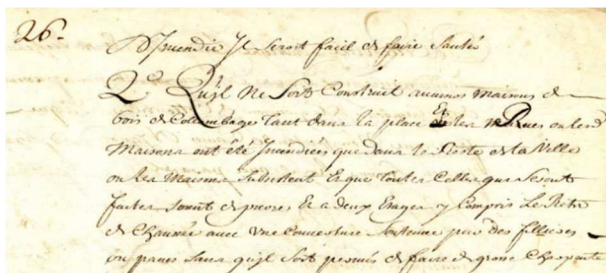 26.
D'Incendie Il seroit facil de faire Sauter
2° Qu'il ne Soit Construit aucunes maisons de
bois de Colombage tant dans la place Et les Rues ou les d.
Maisons ont été Incendiées que dans le Reste de la Ville
ou les Maisons Subsistent Et que toutes Celles qui Seront
faites Seront de pierre, Et a deux Etages y Compris Le Retz
de Chaussée avec une Couverture Soutenue par des fillieres
ou panes Sans quil Soit permis de faire de grosse Charpente